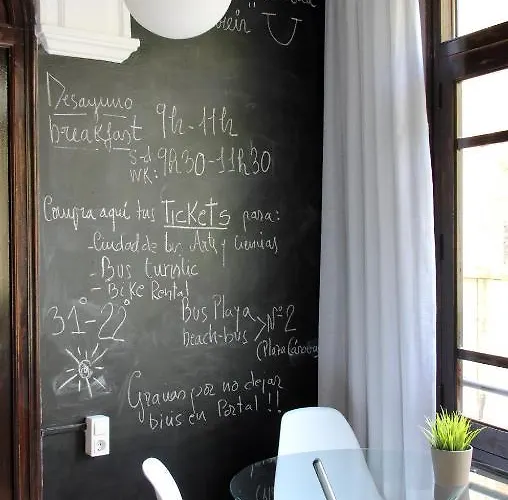 Desayuno
breakfast 9h-11h
S-d
WK: 9h30-11h30
Compra aquí tus TICKETS para:
-Ciudad de las Arts y Ciencias
- Bus turístic
- Bike Rental
31°-22°
Bus Playa
beach-bus > Nº2
(Plaza Cánovas
por no dejar
en Portal!!